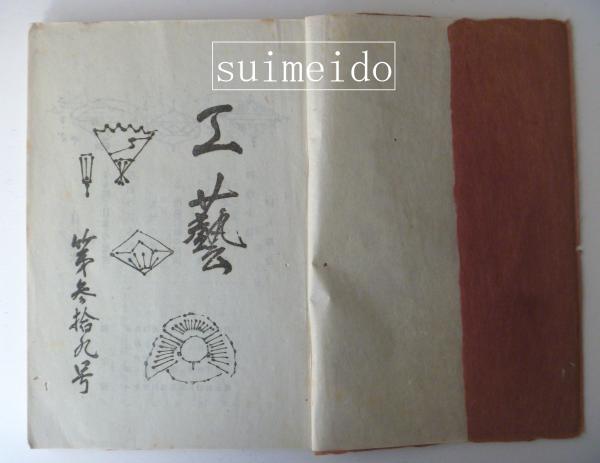 suimeido
工藝
第参拾九号